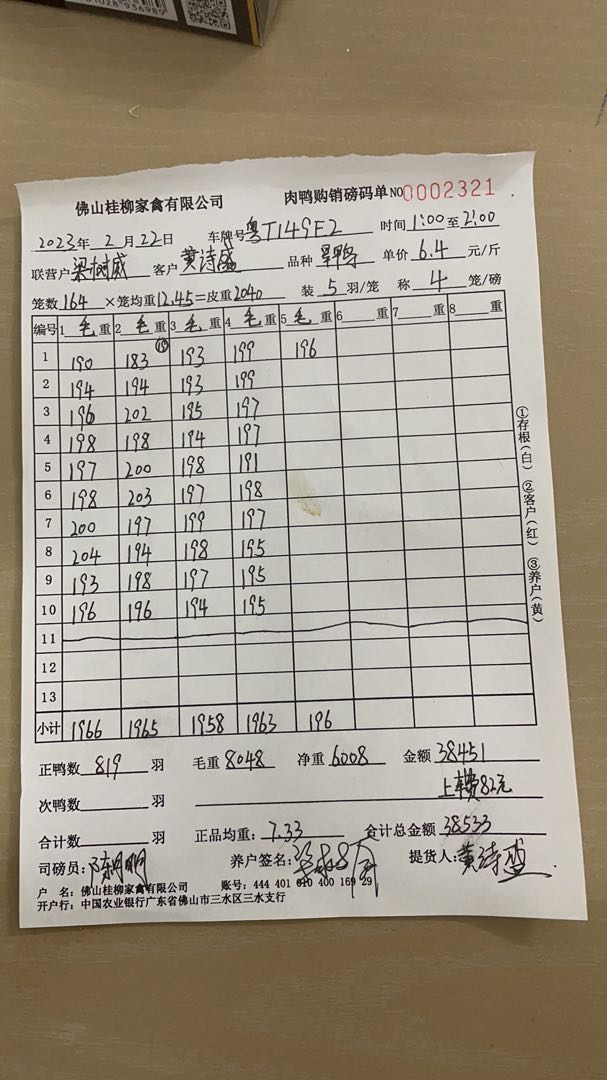 佛山桂柳家禽有限公司 肉鸭购销磅码单 NO 0002321
2023年 2月22日 车牌号粤T149F2 时间1:00至2:00
联营户梁树威 客户黄诗盛 品种 旱鸭 单价 6.4 元/斤
笼数164 ×笼均重12.45=皮重2040 装 5 羽/笼 称 4 笼/磅
编号 1 毛 重 2 毛 重 3 毛 重 4 毛 重 5 毛 重 6 重 7 重 8 重
1 190 183 193 199 196
2 194 194 193 199
3 196 202 195 197
4 198 198 194 197
5 197 200 198 191
6 198 203 197 198
7 200 197 199 197
8 204 194 198 195
9 193 198 197 195
10 196 196 194 195
11
12
13
小计 1966 1965 1958 1963 196
正鸭数 819 羽 毛重 8048 净重 6008 金额 38451
次鸭数 羽 上车费82元
合计数 羽 正品均重: 7.33 合计总金额 38533
司磅员: 养户签名: 提货人: 黄诗盛
户 名: 佛山桂柳家禽有限公司 账号: 444 401 010 400 169 29
开户行: 中国农业银行广东省佛山市三水区三水支行
①存根(白) ②客户(红) ③养户(黄)